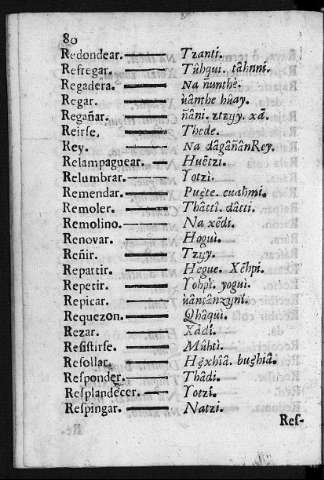 80
Redondear. Tzanti.
Refregar. Tûhqui. tâhnni.
Regadera. Na ñunthè.
Regar. ùânthe hûay.
Regañar. ñâni. ztzyy. xâ.
Reirse. Thede.
Rey. Na dâgâñânRey.
Relampaguear. Huêtzi.
Relumbrar. Yotzi.
Remendar. Puęte. euahmi.
Remoler. Thâttî. dâtti.
Remolino. Na xêdi.
Renovar. Hogui.
Reñir. Tzyy.
Repartir. Hegue. Xêhpi.
Repetir. Yohpî. yogui.
Repicar. ùântânzyni.
Requezon. Qhâqui.
Rezar. Xâdi.
Resistirse. Mûhtî.
Resollar. Hęxhîâ. bughiâ.
Responder. Thâdi.
Resplandecer. Yotzi.
Respingar. Natzi.
Res-